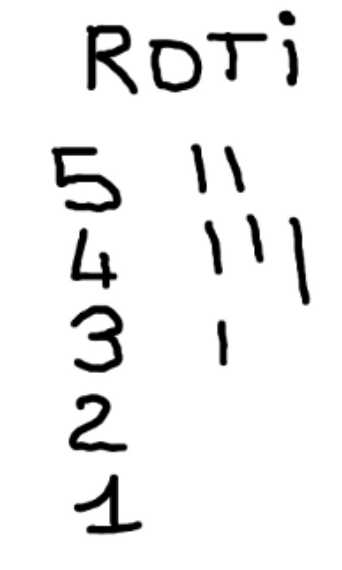 ROTi
5 ||
4 |||
3 |
2
1